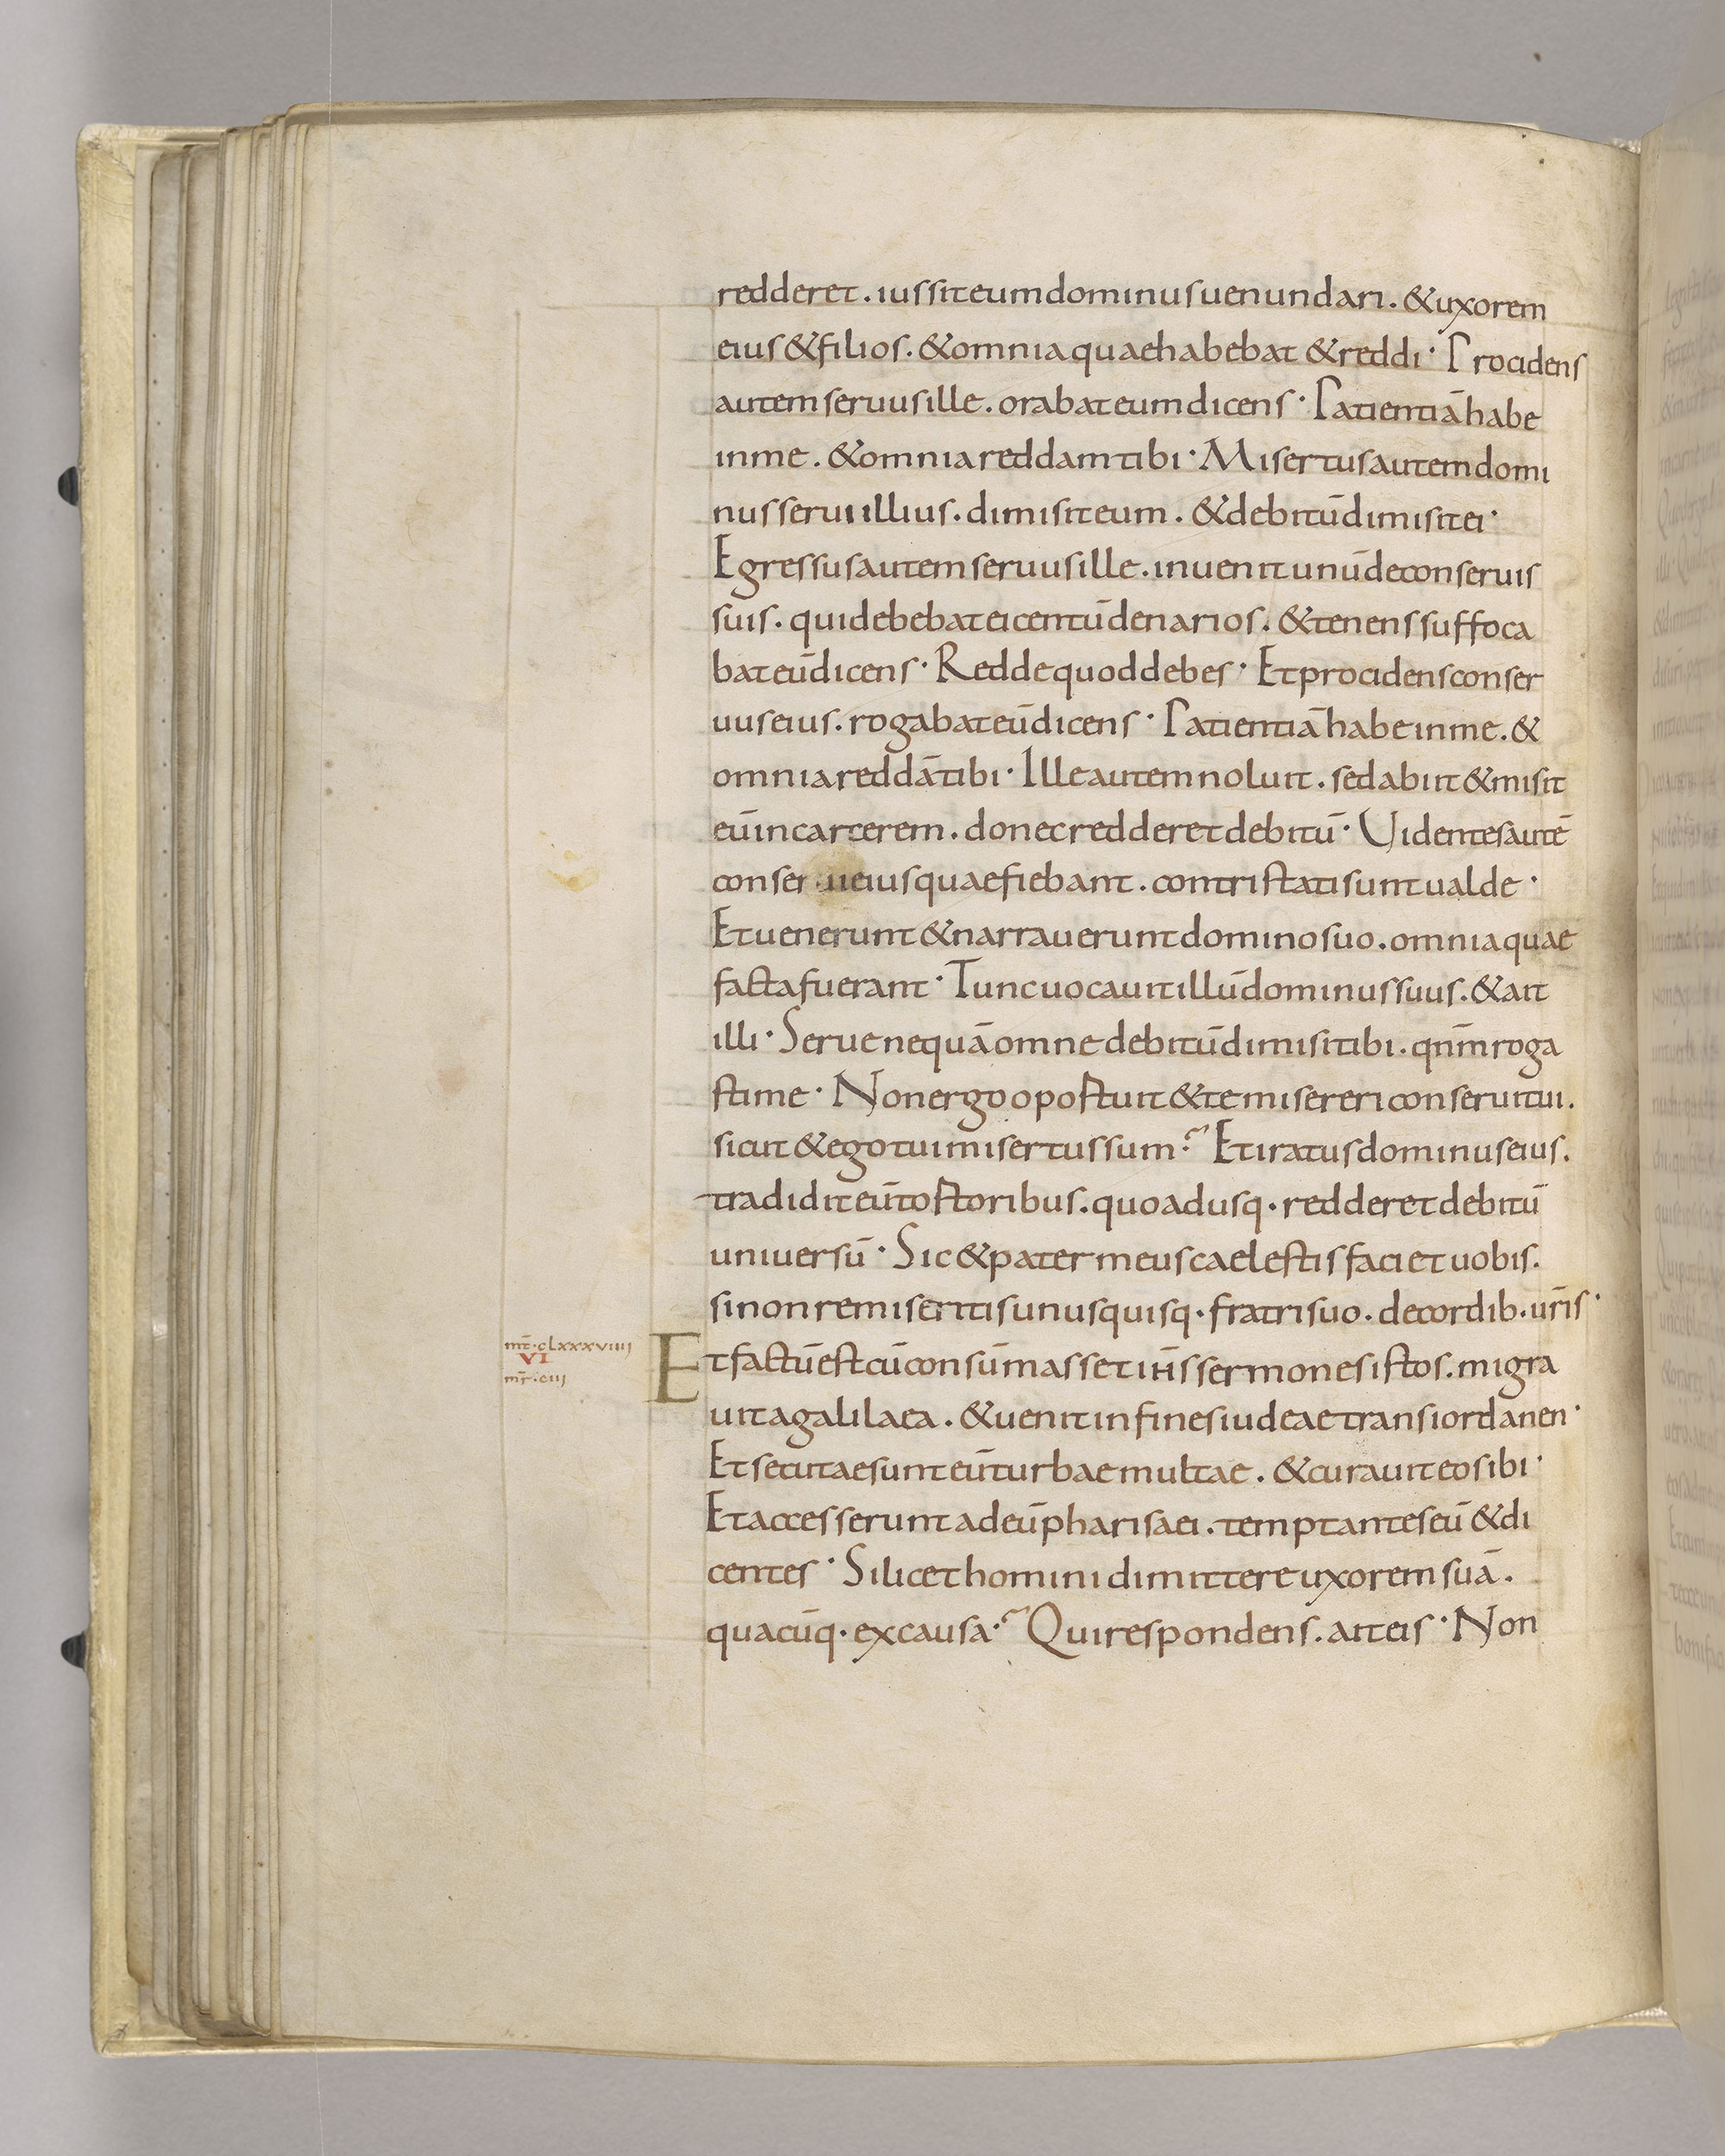 redderet. iussit eum dominus uenundari. & uxorem
eius & filios. & omnia quae habebat & reddi· Procidens
autem seruus ille. orabat eum dicens· Patientiā habe
in me. & omnia reddam tibi· Misertus autem domi
nus serui illius. dimisit eum. & debitū dimisit ei·
Egressus autem seruus ille. inuenit unū de conseruis
suis. qui debebat ei centū denarios. & tenens suffoca
bat eū dicens· Redde quod debes· Et procidens conser
uus eius. rogabat eū dicens· Patientiā habe in me. &
omnia reddā tibi· Ille autem noluit. sed abiit & misit
eū in carcerem. donec redderet debitū· Uidentes autē
conserui eius quae fiebant. contristati sunt ualde·
Et uenerunt & narrauerunt domino suo. omnia quae
facta fuerant· Tunc uocauit illū dominus suus. & ait
illi· Serue nequā omne debitū dimisi tibi. qnm̄ roga
sti me· Non ergo oportuit & te misereri conserui tui.
sicut & ego tui misertus sum? Et iratus dominus eius.
tradidit eū tortoribus. quoadusq· redderet debitū
uniuersū· Sic & pater meus caelestis faciet uobis.
si non remiseritis unusquisq· fratri suo. de cordib· ur̄is·
mt̄·clxxxviiij
VI
mr̄·ciij
Et factū est cū consūmasset ih̄s sermones istos. migra
uit a galilaea. & uenit in fines iudeae trans iordanen·
Et secutae sunt eū turbae multae. & curauit eos ibi·
Et accesserunt ad eū pharisaei. temptantes eū & di
centes· Si licet homini dimittere uxorem suā.
quacūq· ex causa? Qui respondens. ait eis· Non